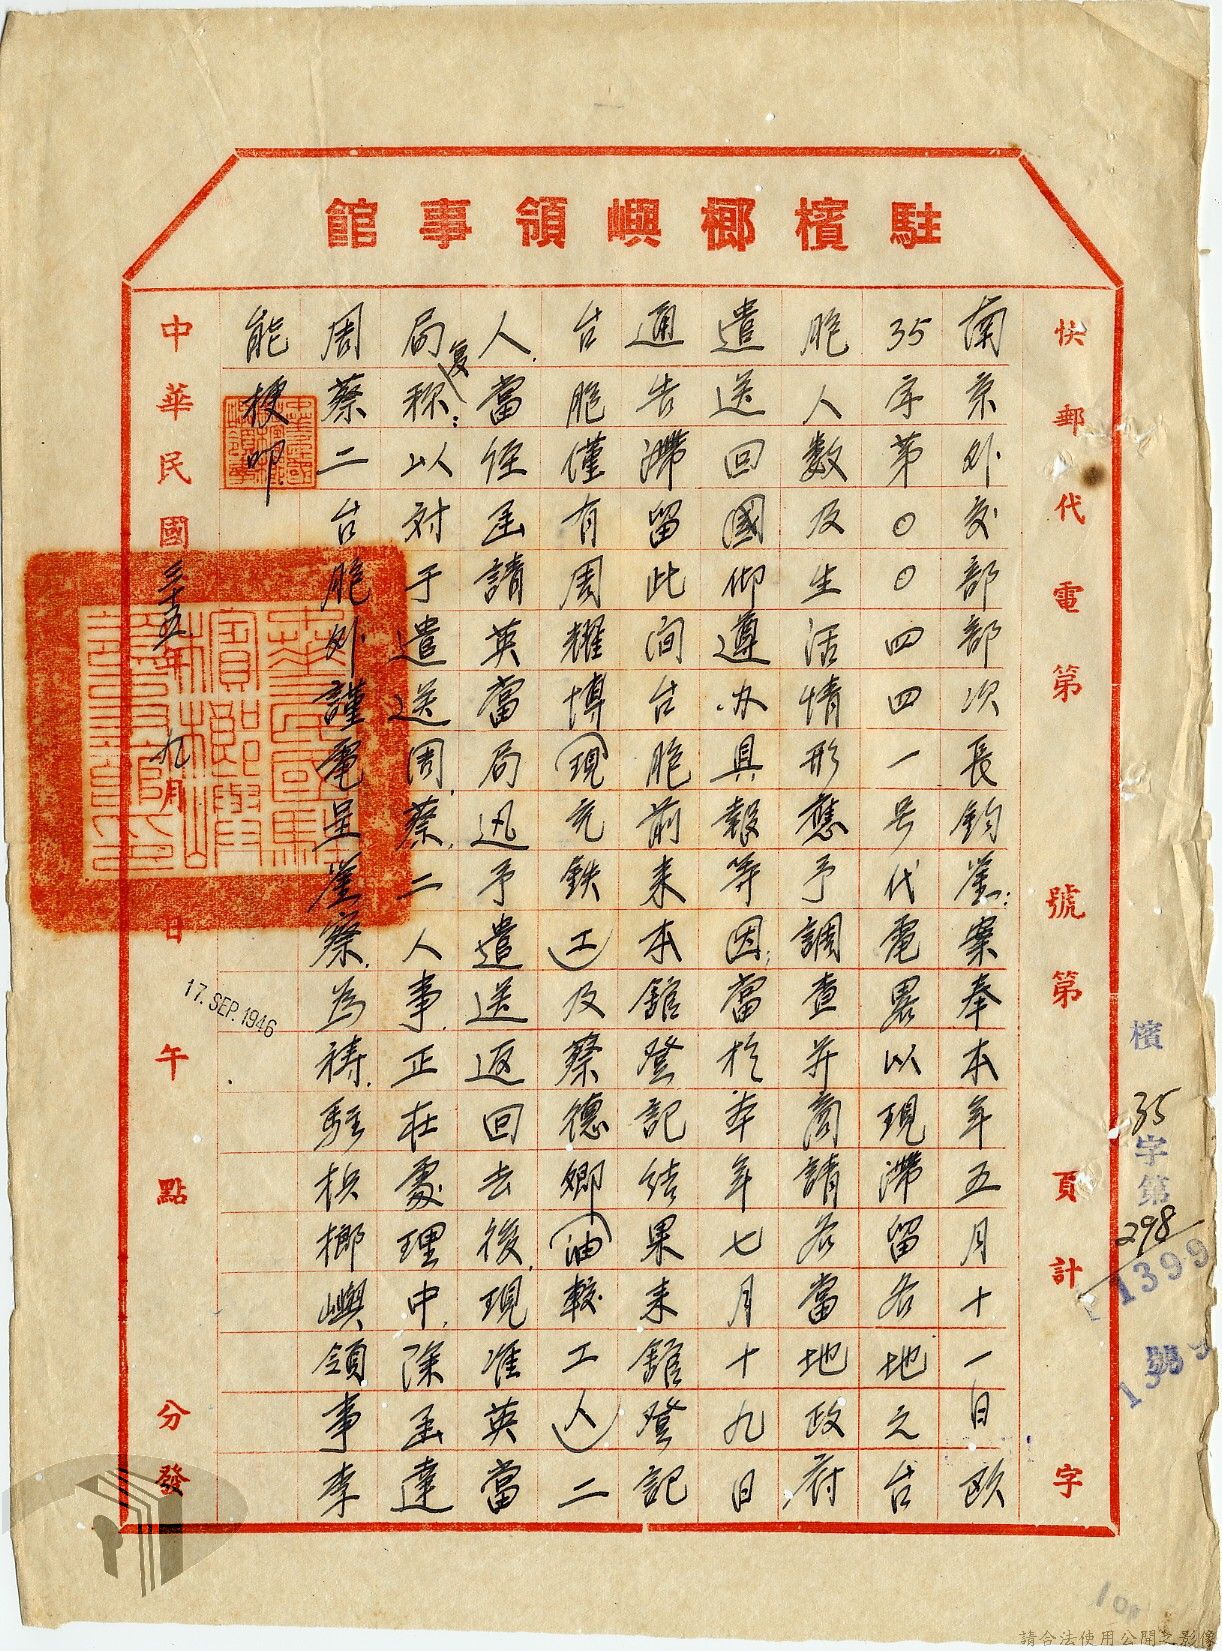 駐檳榔嶼領事館
快郵代電第 號第 頁計 字
檳35字第298號
1399
1399
南京外交部部次長鈞鑒:案奉本年五月十一日欧
35字第○○四四一号代電畧以現滯留各地之台
胞人数及生活情形應予調查并商請各當地政府
遣送回國仰遵办具報等因,當於本年七月十九日
通告滯留此间台胞前来本館登記結果来館登記
台胞僅有周耀博(現充鉄工)及蔡德鄉(油較工人)二
人.當经函請英當局迅予遣送返回去後,現准英當
局复称:以対于遣送周.蔡.二人事.正在處理中,除函達
周蔡二台胞外謹電呈鑒察.為祷.駐檳榔嶼領事李
能梗叩
中華民國三十五年九月 日 午 點 分發
17. SEP. 1946
請合法使用公開之影像